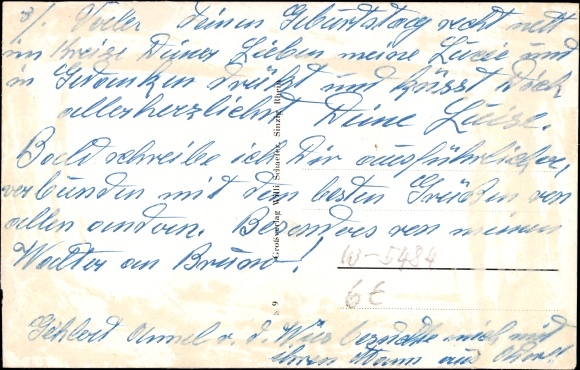 3/. Deinen Geburtstag recht nett
im Kreise Deiner Lieben meine und
in Gedanken drückt und küsst Dich
allerherzlichst Deine Luise.
Bald schreibe ich Dir ausführlicher,
verbunden mit den besten Grüßen von
allen andern. Besonders von meinem
Walter an Bruno!
W-5484
6€
mich mit
ihrem Mann aus
s 9 Großverlag Willi Schmeier, Sinzig Rhein